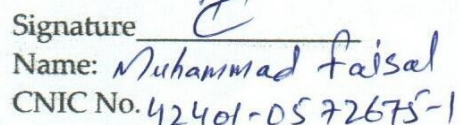 Signature
Name: Muhammad Faisal
CNIC No. 42401-0572675-1